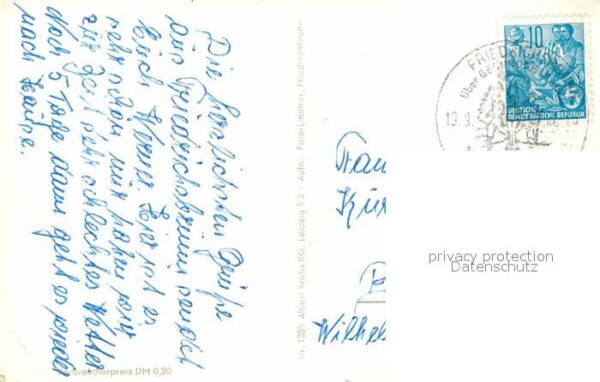 Die herzlichsten Grüße
aus Friedrichsbrunn sendet
Euch Werner. Hier ist es
sehr schön nur haben wir
zur Zeit sehr schlechtes Wetter
Noch 5 Tage dann geht es wieder
nach Hause.
Verbraucherpreis DM 0,20
Nr. 1355 Albert Krebs KG, Leipzig S 3 - Aufn. Foto-Lindner, Friedrichsbrunn
10
DEUTSCHE
DEMOKRATISCHE REPUBLIK
5
FRIEDRICHS
über
Frau
privacy protection
Datenschutz
Wilhel